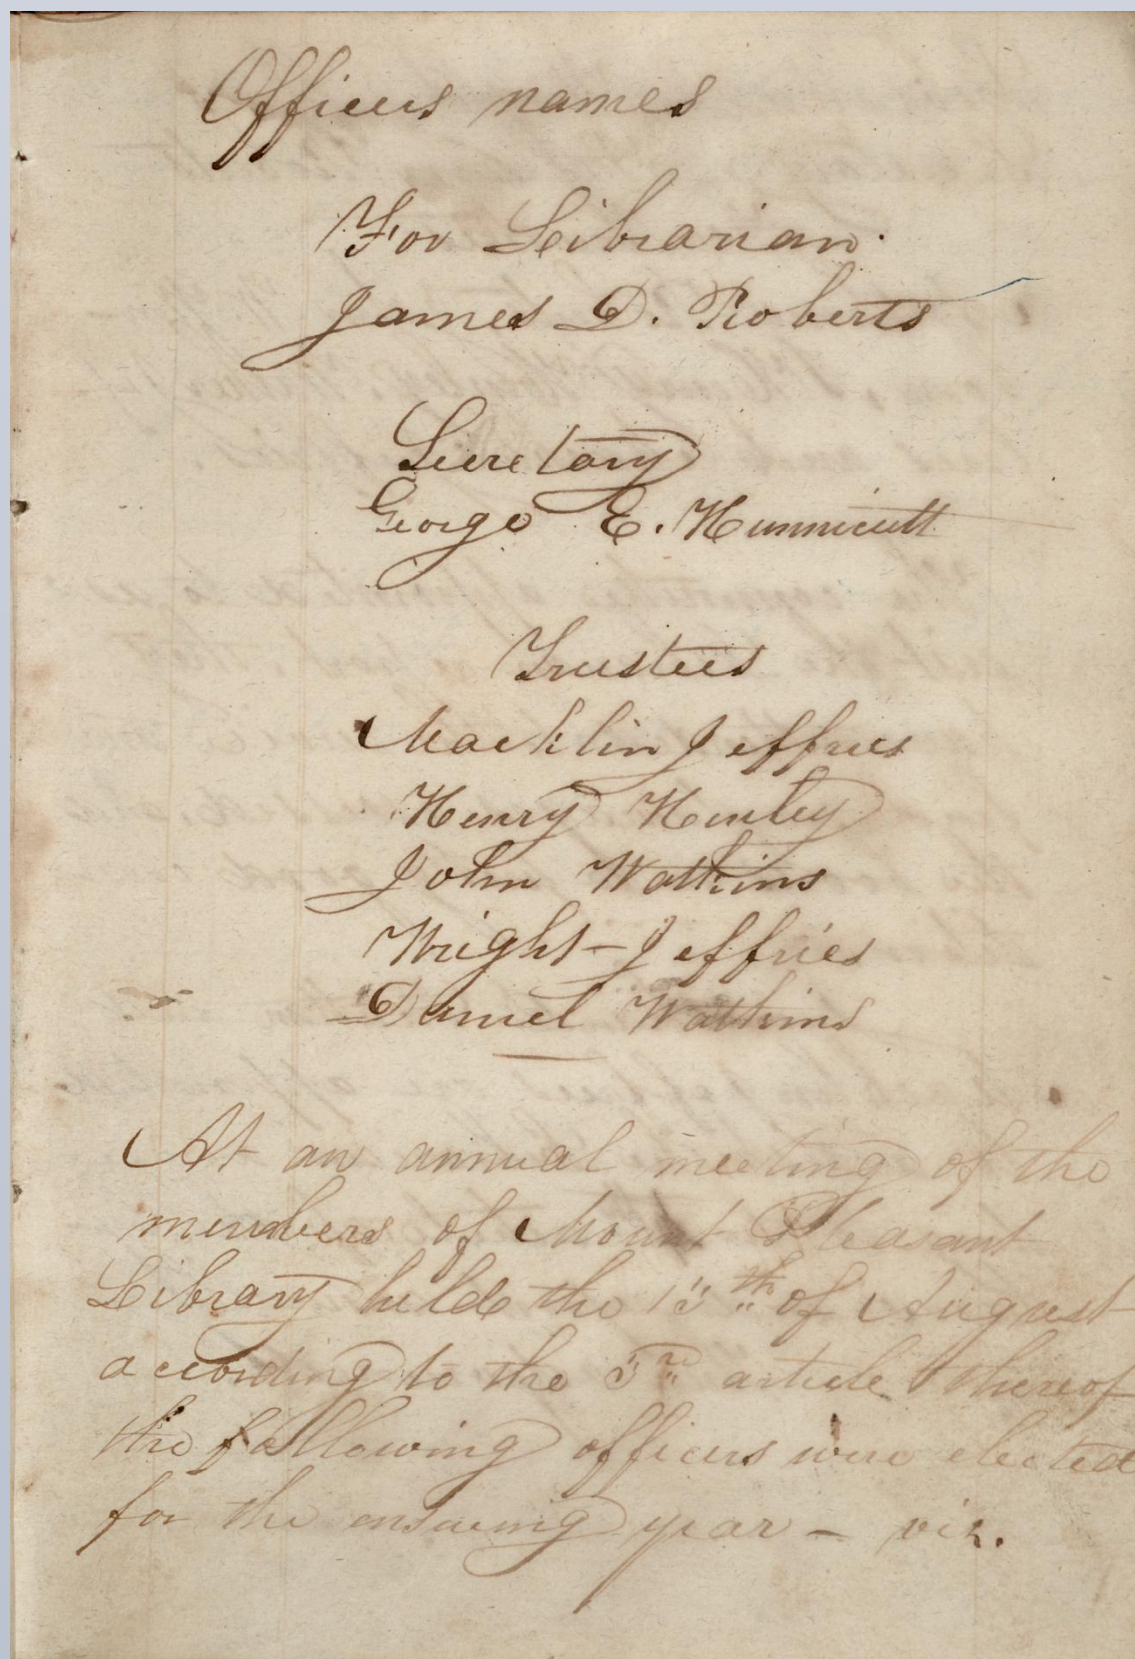 Officers names
For Librarian.
James D. Roberts
Secretary
George E. Hunnicutt
Trustees
Macklin Jeffries
Henry Henley
John Watkins
Wright - Jeffries
Daniel Watkins
At an annual meeting of the
members of Mount Pleasant
Library held the of August
according to the article thereof
the following officers were elected
for the ensueing year – viz.